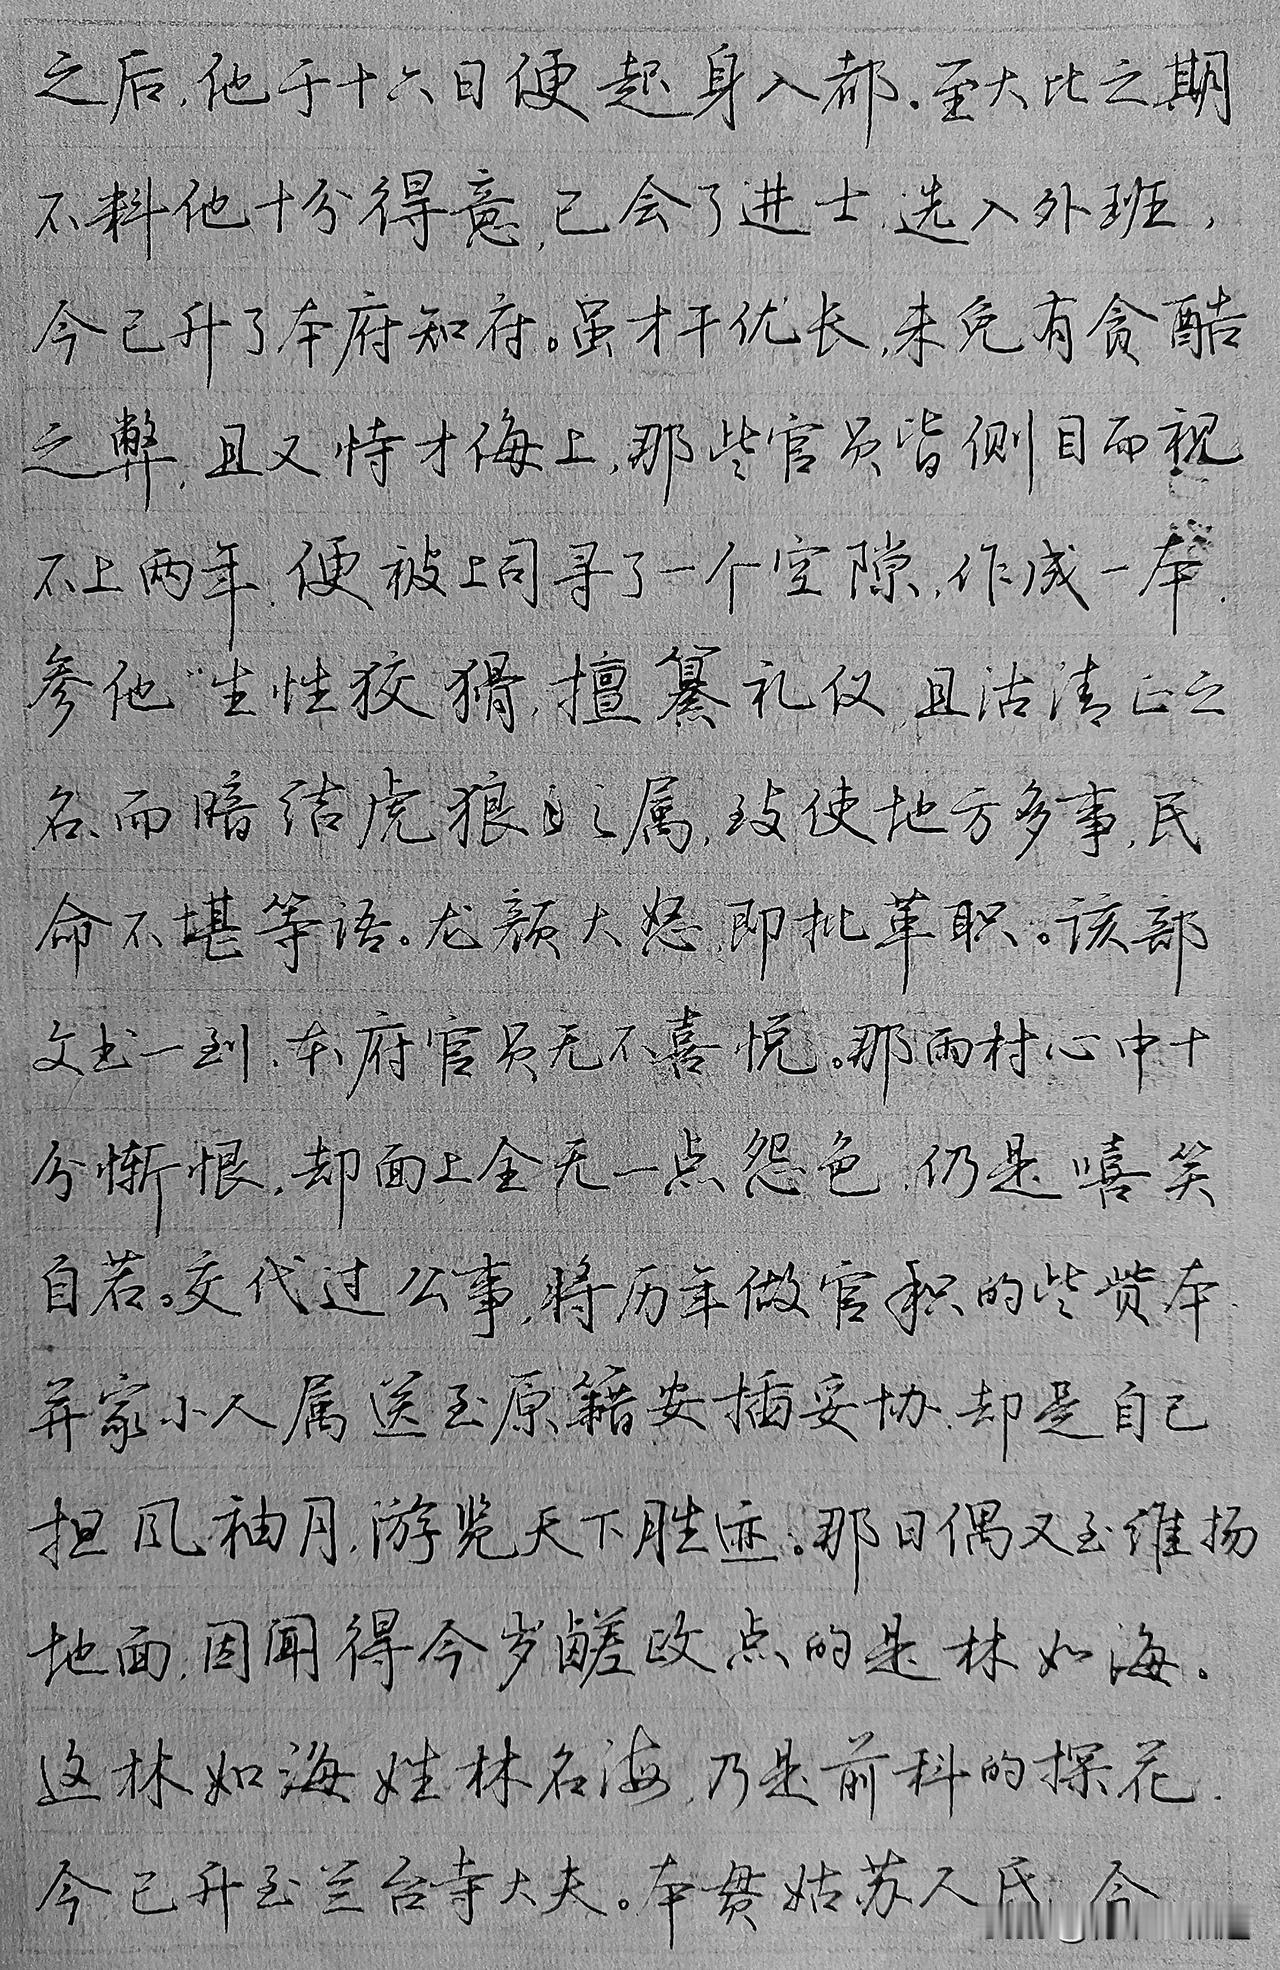 之后,他于十六日便起身入都。至大比之期
不料他十分得意,已会了进士,选入外班,
今已升了本府知府。虽才干优长,未免有贪酷
之弊,且又恃才侮上,那些官员皆侧目而视
不上两年,便被上司寻了一个空隙,作成一本,
参他“生性狡猾,擅纂礼仪,且沽清正之
名,而暗结虎狼之属,致使地方多事,民
命不堪等语。龙颜大怒,即批革职。该部
文书一到,本府官员无不喜悦。那雨村心中十
分惭恨,却面上全无一点怨色,仍是嘻笑
自若。交代过公事,将历年做官积的些赀本,
并家小人属送至原籍安插妥协,却是自己
担风袖月,游览天下胜迹。那日偶又至维扬
地面,因闻得今岁鹾政点的是林如海。
这林如海姓林名海,乃是前科的探花,
今已升至兰台寺大夫。本贯姑苏人氏,今